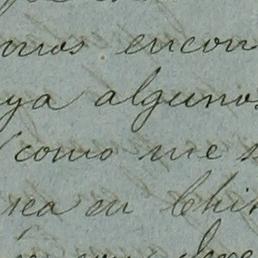 mos encon
ya algunos
como me s
sea en Chi